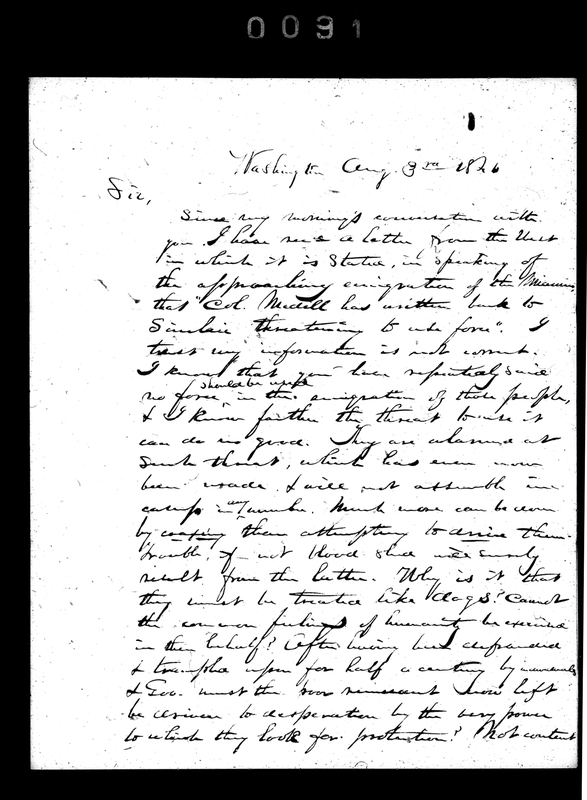 0091
Washington Aug. 3rd 1846
Sir,
Since my morning's conversation with
you I have seen a letter from the West
in which it is Stated, in speaking of
the approaching emigration of the Miamis
that "Col. Medill has written back to
Sinclair threatening to use force". I
trust my information is not correct.
I know that you have repeatedly said
no force should be used in the emigration of those people,
& I know further the threat to use it
can do no good. They are alarmed at
Such threat, which has even now
been made & will not assemble in
camp in any number. Much more can be done
by coaxing than attempting to drive them.
Trouble, if not blood shed will surely
result from the latter. Why is it that
they must be treated like dogs? Cannot
the common feelings of humanity be exercised
in their behalf? After having been defrauded
& trampled upon for half a century by individuals
& Gov. must the poor remnant now left
be driven to desperation by the very power
to which they look for protection? Not content